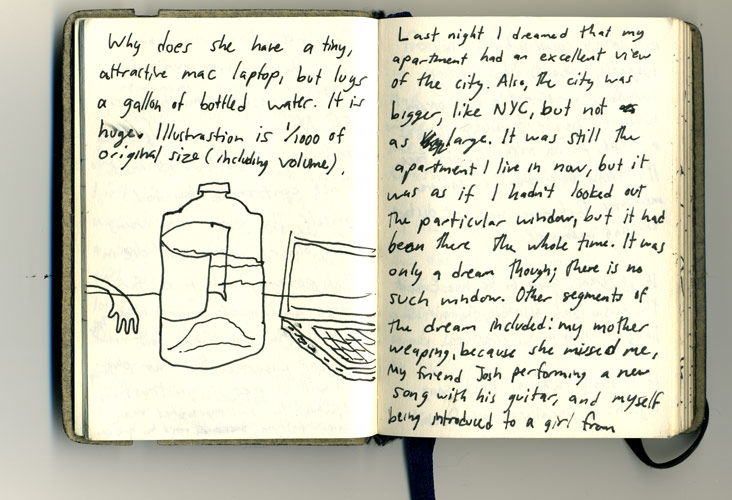 Why does she have a tiny,
attractive mac laptop, but lugs
a gallon of bottled water. It is
huge. Illustrastion is 1/1000 of
original size (including volume).
Last night I dreamed that my
apartment had an excellent view
of the city. Also, the city was
bigger, like NYC, but not
as large. It was still the
apartment I live in now, but it
was as if I hadn't looked out
the particular window, but it had
been there the whole time. It was
only a dream though; there is no
such window. Other segments of
the dream included: my mother
weaping, because she missed me,
my friend Josh performing a new
song with his guitar, and myself
being introduced to a girl from